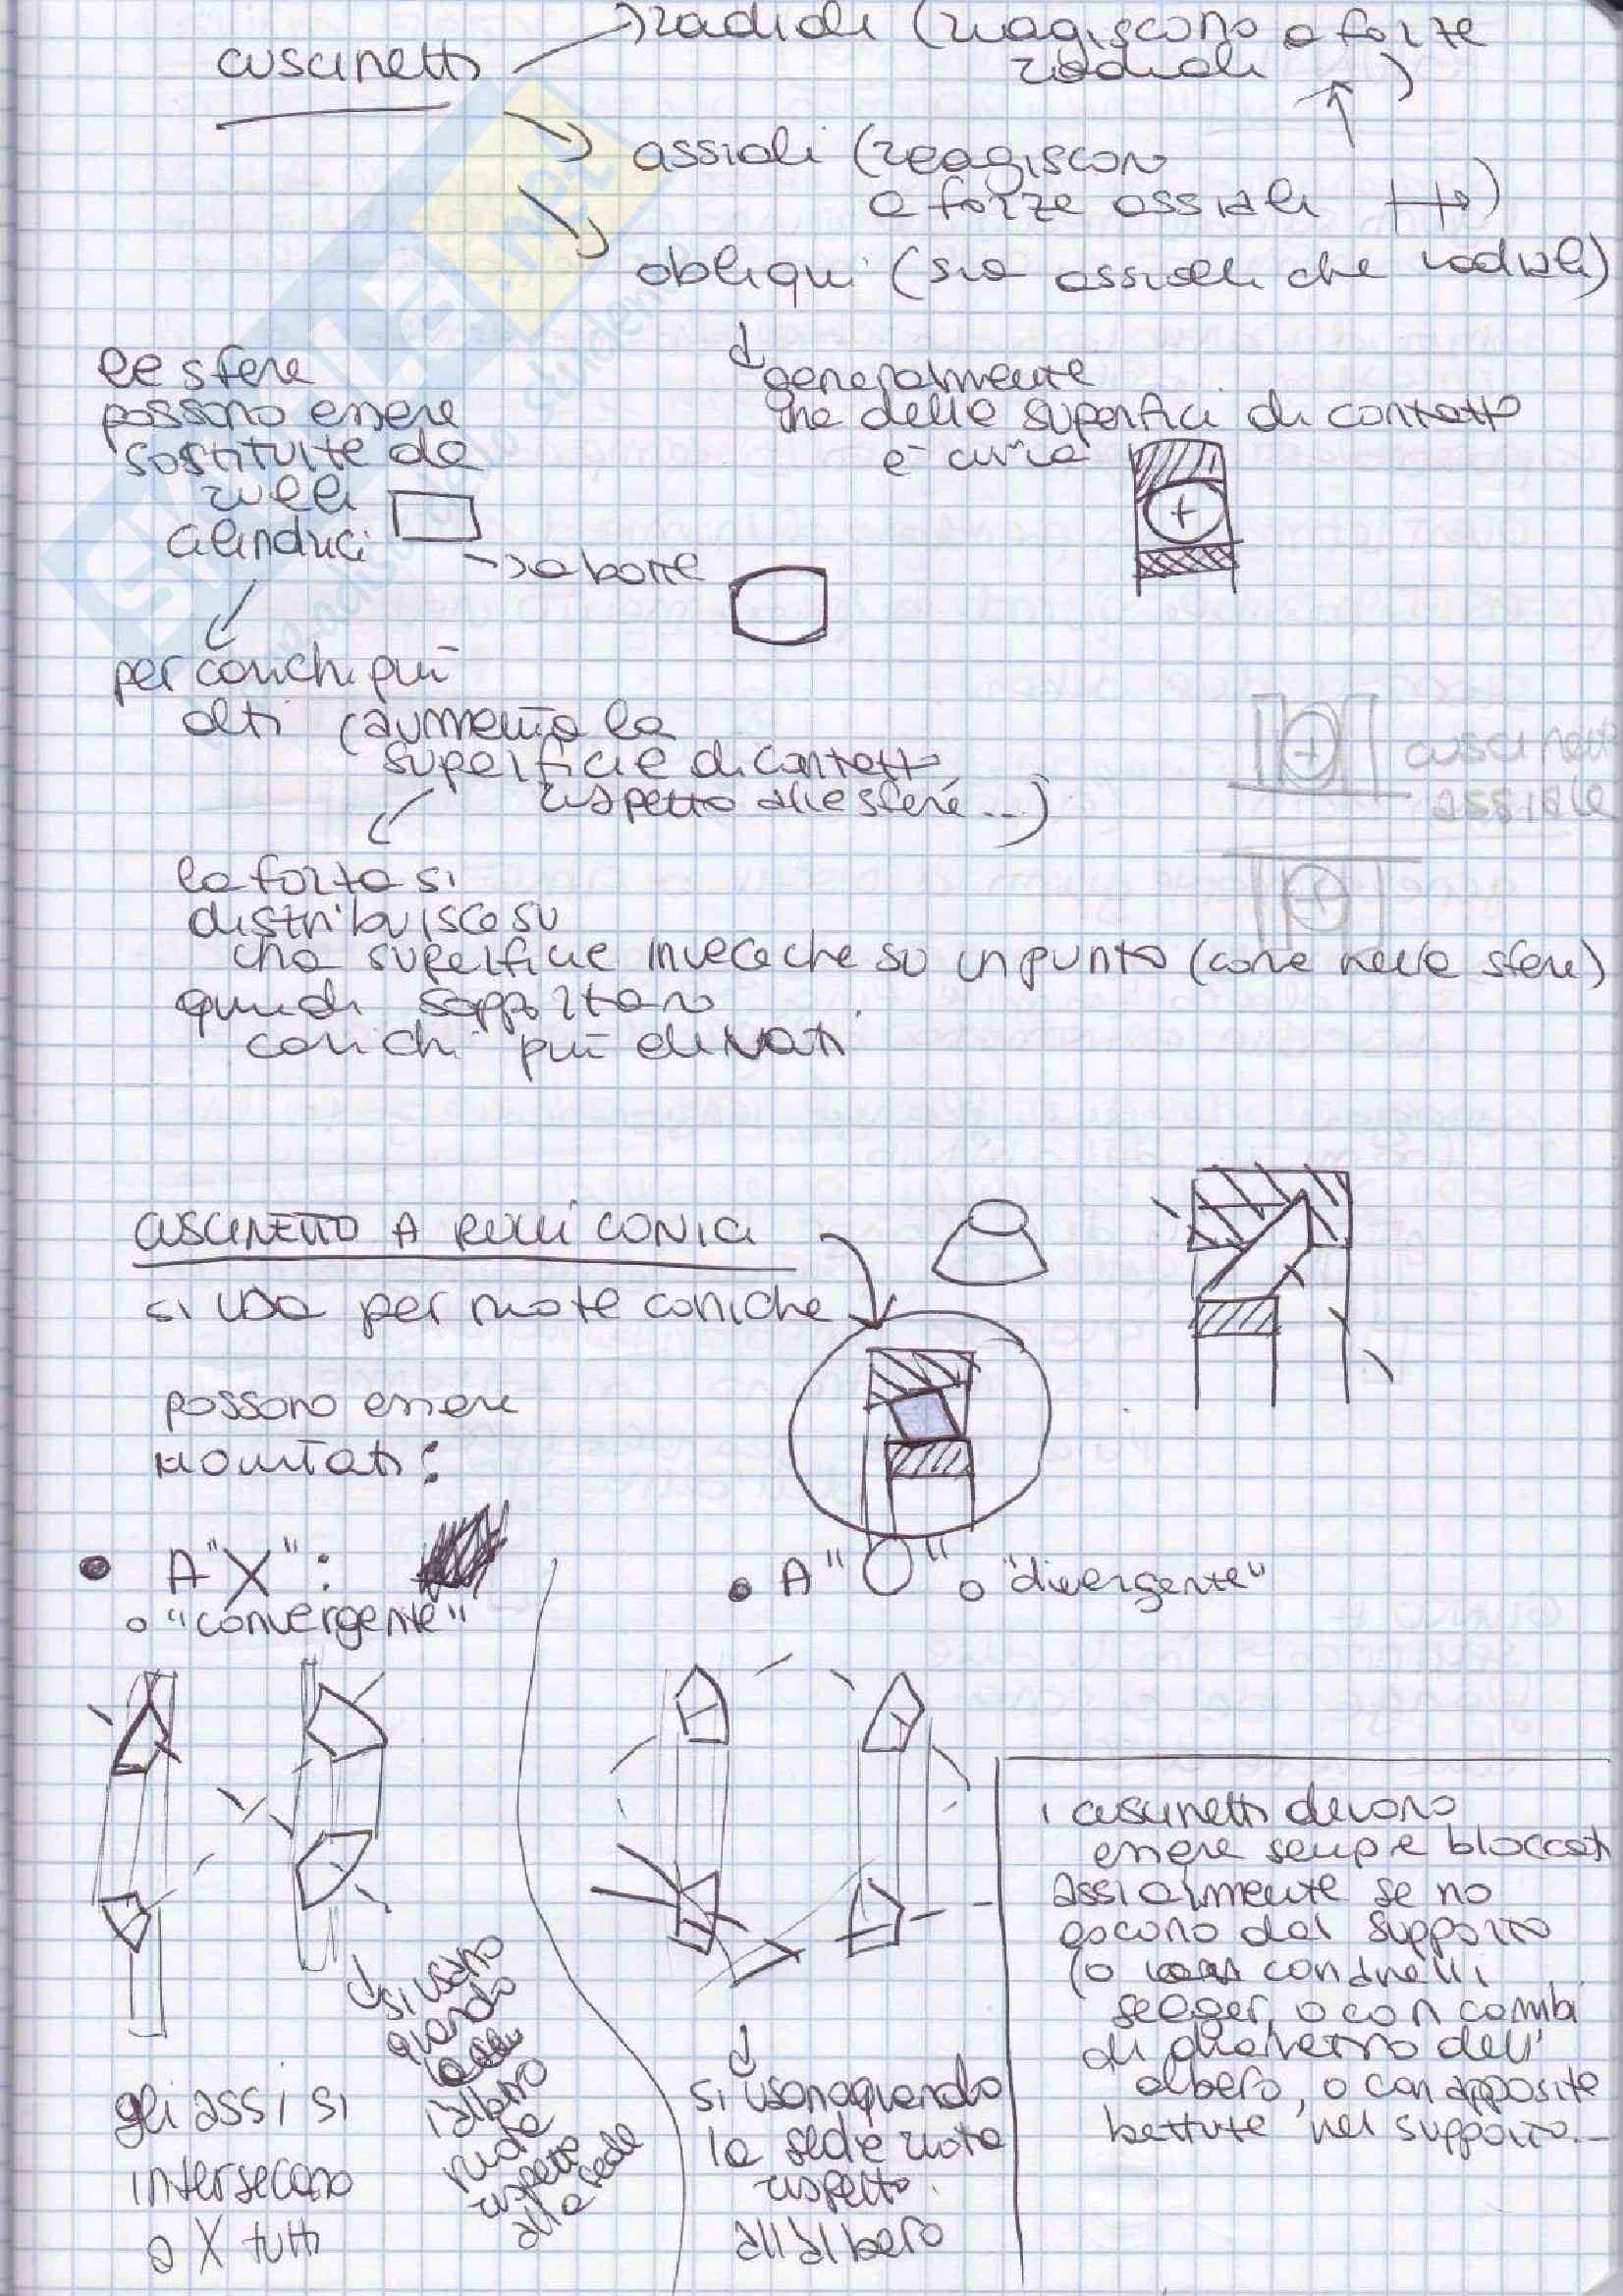 cuscinetti
radiali (reagiscono a forze
radiali )
assiali (reagiscon
a forze assiali )
obliqui (sia assiali che radiali)
le sfere
possono essere
sostituite da
rulli
cilindrici
→ a botte
generalmente
una delle superfici di contatto
è curva
per carichi più
alti (aumenta la
superficie di contatto
rispetto alle sfere...)
cuscinetto
assiale
la forza si
distribuisce su
una superficie invece che su un punto (come nelle sfere)
quindi sopportano
carichi più elevati
CUSCINETTO A RULLI CONICI
si usa per ruote coniche
possono essere
montati:
• A "X":
o "convergente"
• A "O" o "divergente"
gli assi si
intersecano
a X tutti
si usano
quando
l'albero
ruota
rispetto
alla sede
si usano quando
la sede ruota
rispetto
all'albero
i cuscinetti devono
essere sempre bloccati
assialmente se no
escono dal supporto
(o con anelli
seeger, o con cambi
di diametro dell'
albero, o con apposite
battute nel supporto...
SKUOLA.net